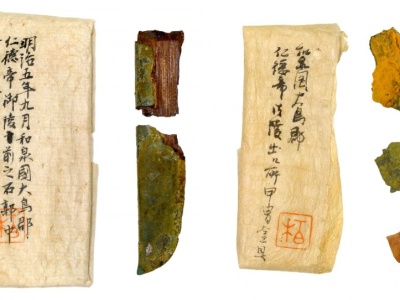 明治五年九月和泉國大鳥郡
仁德帝御陵前之石郭中
和泉国大鳥郡
仁德帝御陵出口所甲冑金具
柏